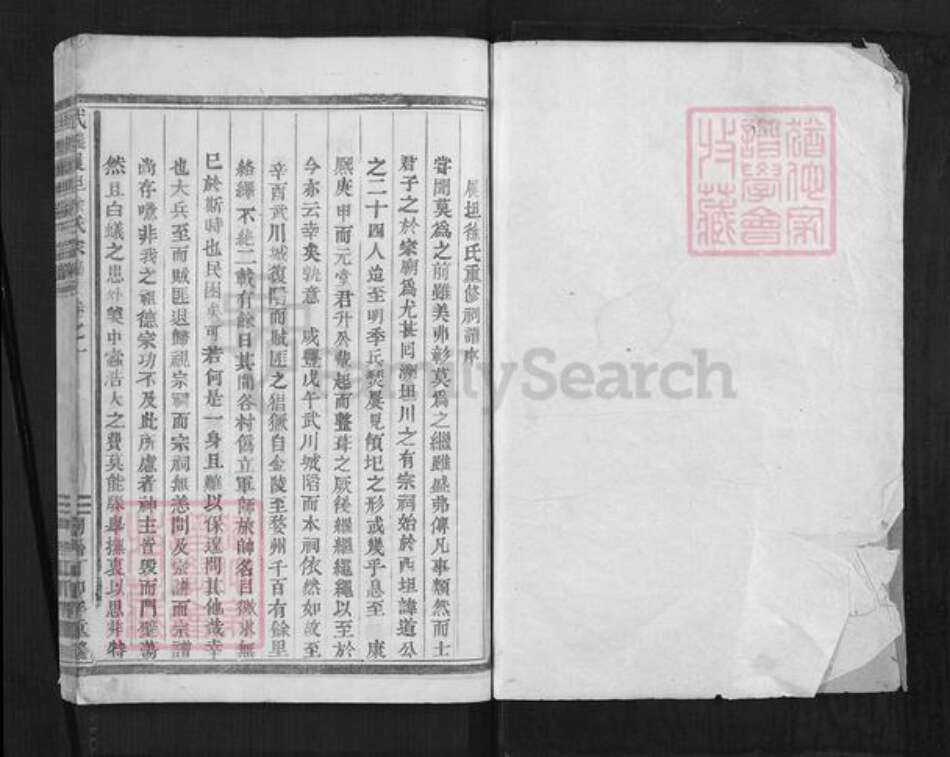 坦徐氏重修祠譜序
嘗聞莫為之前雖美弗彰莫為之繼雖盛弗傳凡事類然而士
君子之於宗廟為尤甚回溯坦川之有宗祠始於西坦諱道公
之二十四人迨至明季兵燹屢見傾圯之形或幾乎息至 康
熙庚申而元堂君升公輩起而整葺之厥後繼繼繩繩以至於
今亦云幸矣孰意 咸豐戊午武川城陷而本祠依然如故至
辛酉武川城復陷而賊匪之猖獗自金陵至婺州千百有餘里
絡繹不絕二載有餘日其間各村僞立軍師旅帥名目徵求無
已於斯時也民困矣可若何是一身且難以保遑問其他哉幸
也大兵至而賊匪退歸視宗祠而宗祠無恙問及宗譜而宗譜
尚存噫非我之祖德宗功不及此所慮者神主皆毀而門壁蕩
然且白蟻之患外美中蠹浩大之費莫能驟舉撫衷以思非特
氏宗
FamilySearch
猶他家
譜學會
收藏